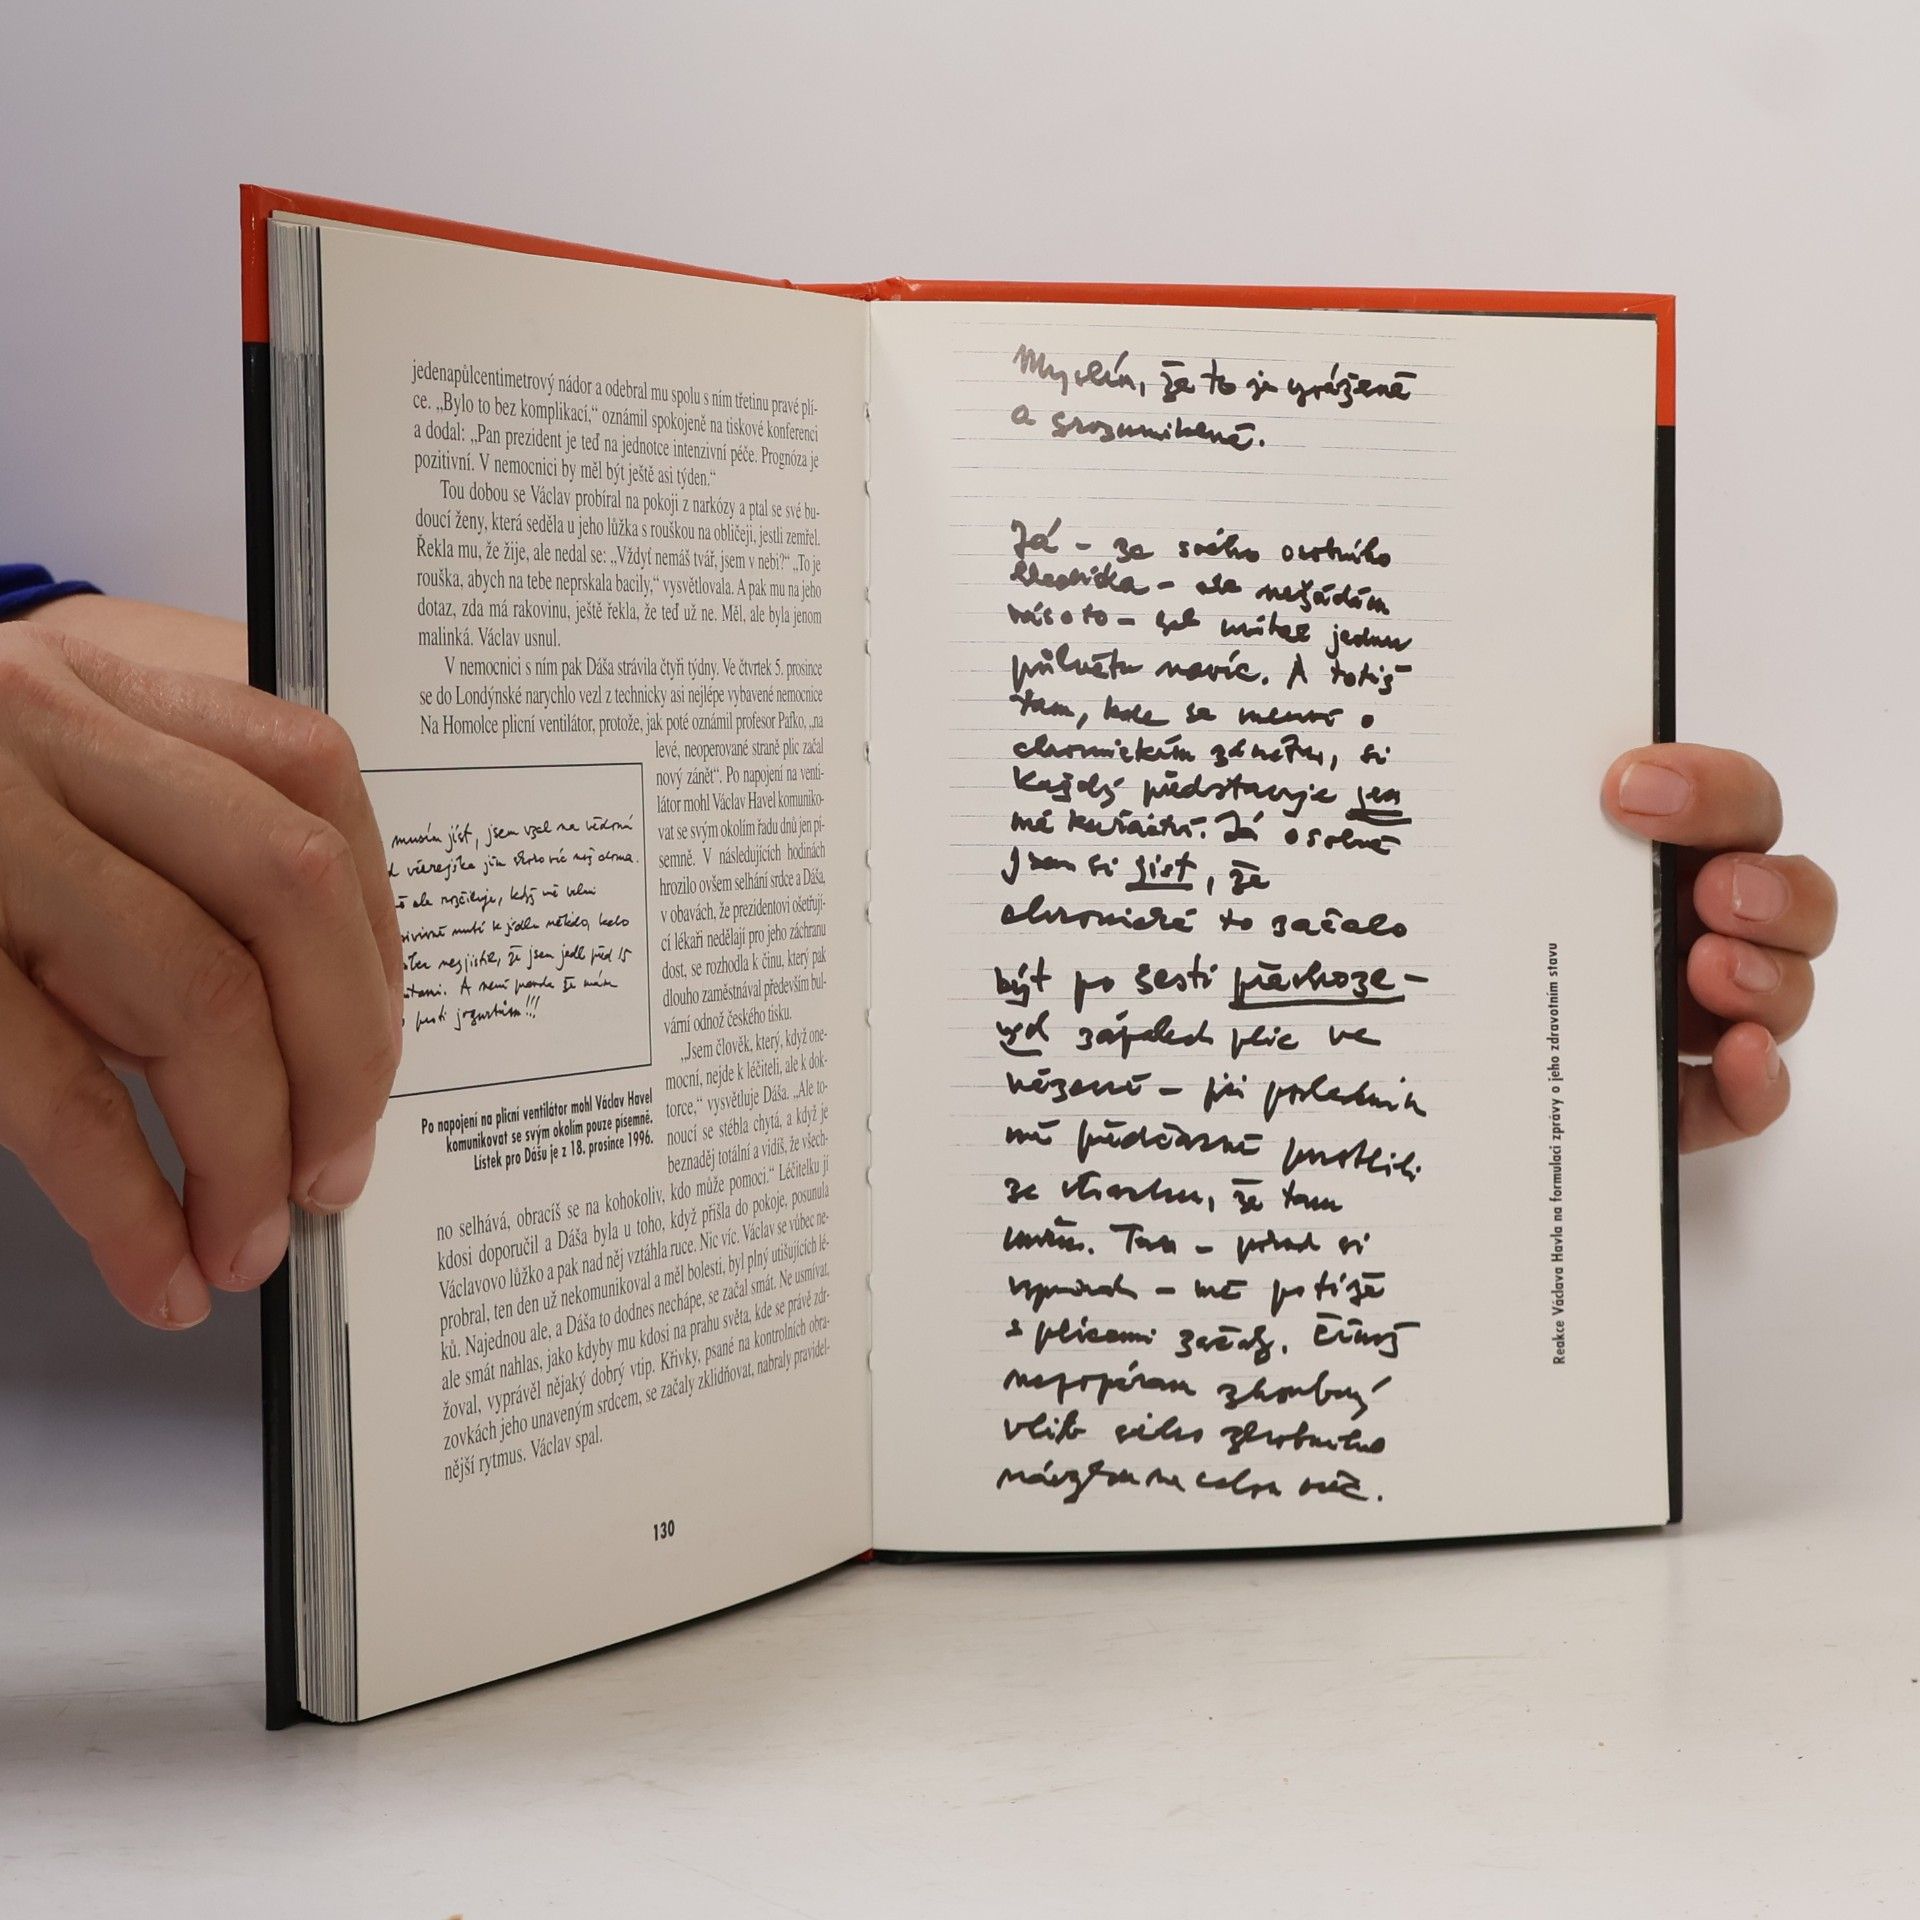 jedenapůlcentimetrový nádor a odebral mu spolu s ním třetinu pravé plí-
ce. „Bylo to bez komplikací,“ oznámil spokojeně na tiskové konferenci
a dodal: „Pan prezident je teď na jednotce intenzivní péče. Prognóza je
pozitivní. V nemocnici by měl být ještě asi týden.“
Tou dobou se Václav probíral na pokoji z narkózy a ptal se své bu-
doucí ženy, která seděla u jeho lůžka s rouškou na obličeji, jestli zemřel.
Řekla mu, že žije, ale nedal se: „Vždyť nemáš tvář, jsem v nebi?“ „To je
rouška, abych na tebe neprskala bacily,“ vysvětlovala. A pak mu na jeho
dotaz, zda má rakovinu, ještě řekla, že teď už ne. Měl, ale byla jenom
malinká. Václav usnul.
V nemocnici s ním pak Dáša strávila čtyři týdny. Ve čtvrtek 5. prosince
se do Londýnské narychlo vezl z technicky asi nejlépe vybavené nemocnice
Na Homolce plicní ventilátor, protože, jak poté oznámil profesor Pafko, „na
levé, neoperované straně plic začal
nový zánět“. Po napojení na venti-
látor mohl Václav Havel komuniko-
vat se svým okolím řadu dnů jen pí-
semně. V následujících hodinách
hrozilo ovšem selhání srdce a Dáša,
v obavách, že prezidentovi ošetřují-
cí lékaři nedělají pro jeho záchranu
dost, se rozhodla k činu, který pak
dlouho zaměstnával především bul-
vární odnož českého tisku.
„Jsem člověk, který, když one-
mocní, nejde k léčiteli, ale k dok-
torce,“ vysvětluje Dáša. „Ale to-
noucí se stébla chytá, a když je
beznaděj totální a vidíš, že všech-
no selhává, obracíš se na kohokoliv, kdo může pomoci.“ Léčitelku jí
kdosi doporučil a Dáša byla u toho, když přišla do pokoje, posunula
Václavovo lůžko a pak nad něj vztáhla ruce. Nic víc. Václav se vůbec ne-
probral, ten den už nekomunikoval a měl bolesti, byl plný utišujících lé-
ků. Najednou ale, a Dáša to dodnes nechápe, se začal smát. Ne usmívat,
ale smát nahlas, jako kdyby mu kdosi na prahu světa, kde se právě zdr-
žoval, vyprávěl nějaký dobrý vtip. Křivky, psané na kontrolních obra-
zovkách jeho unaveným srdcem, se začaly zklidňovat, nabraly pravidel-
nější rytmus. Václav spal.
musím jíst, jsem vzal na vědomí
včerejška jím skoro víc než doma.
ale rozčiluje, když mě velmi
nutí k jídlu někdo, kdo
nezjistil, že jsem jedl před 15
A není pravda že mám
jogurtům!!!
Po napojení na plicní ventilátor mohl Václav Havel
komunikovat se svým okolím pouze písemně.
Lístek pro Dášu je z 18. prosince 1996.
130
Myslím, že to je vyváženě
a srozumitelné.
Já – ze svého osobního
hlediska – ale nežádám
vás o to – bych uvítal jednu
půlvětu navíc. A totiž
tam, kde se mluví o
chronickém zánětu, si
každý představuje jen
mé kuřáctví. Já osobně
jsem si jist, že
chronické to začalo
být po šesti přechoze-
ných zápalech plic ve
vězení – při posledním
mě předčasně pustili
ze strachu, že tam
umřu. Tam – pokud si
vzpomínám – mé potíže
s plícemi začaly. Čímž
nepopírám zhoubný
vliv svého zlozvyku
na celou věc.
Reakce Václava Havla na formulaci zprávy o jeho zdravotním stavu